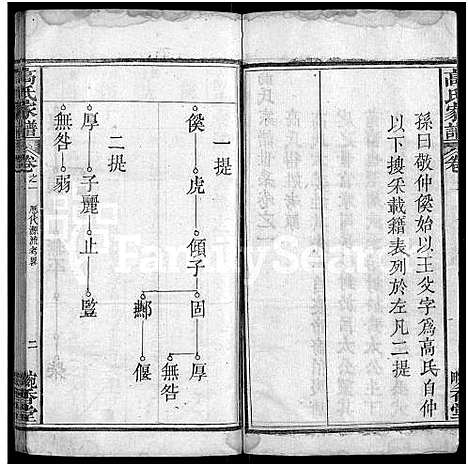 高氏家譜
卷
晼香堂
孫曰敬仲傒始以王父字爲高氏自仲
以下搜采載籍表列於左凡二提
一提
傒 虎 傾子 固 厚
無咎
鄥 偃
二提
厚 子麗 止 豎
無咎 弱
高氏家譜
卷之一
歷代源流考畧
二
晼香堂
FamilySearch